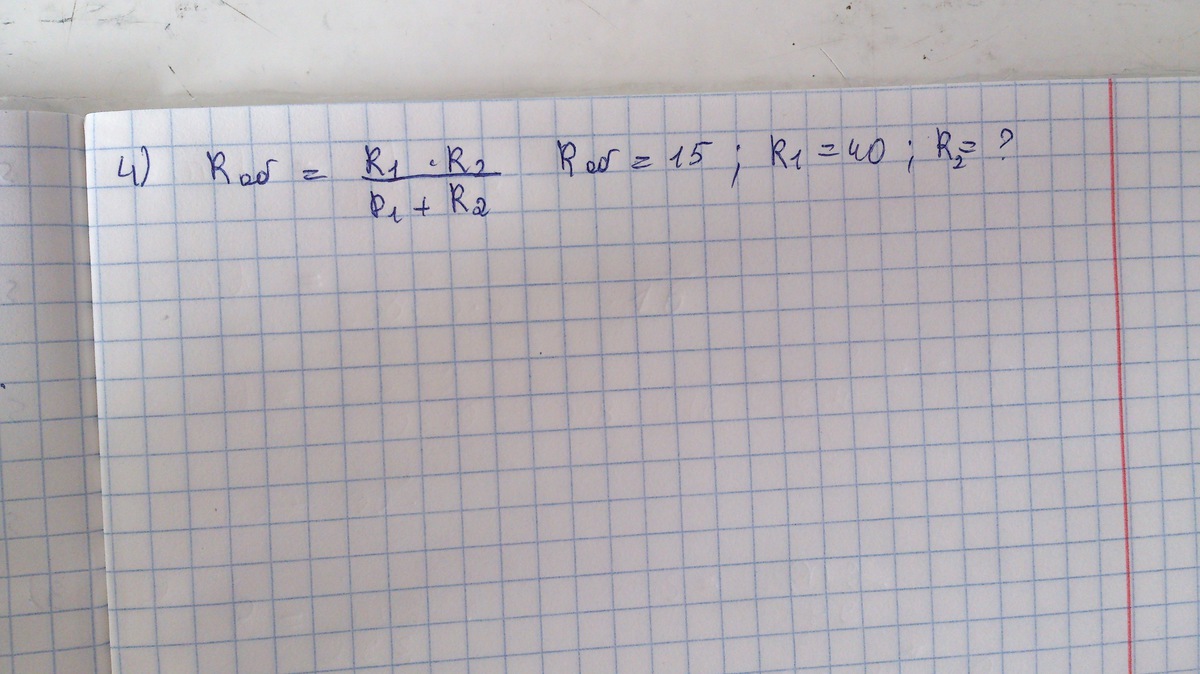 4) Rоб = R1 · R2 / R1 + R2 Rоб = 15 ; R1 = 40 ; R2 = ?